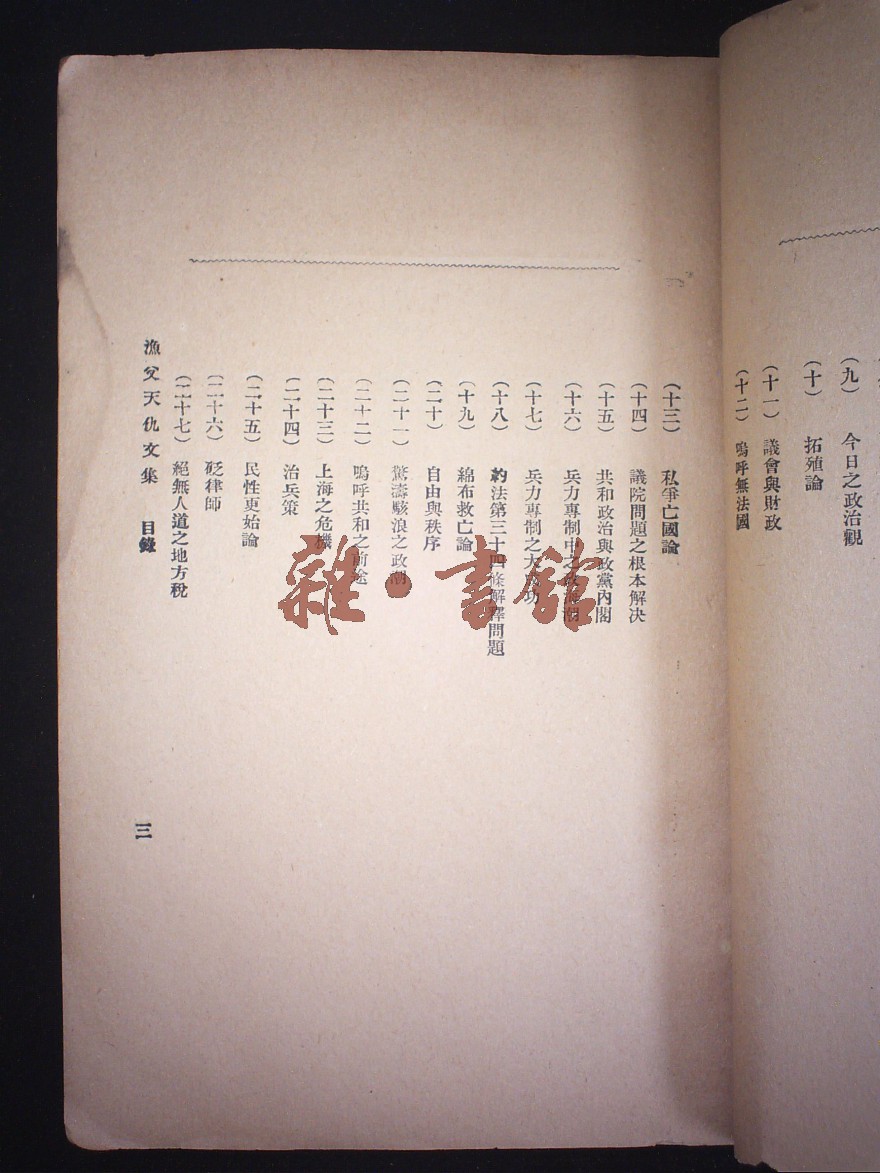 （九）　今日之政治觀
（十）　拓殖論
（十一）　議會與財政
（十二）　嗚呼無法國
（十三）　私爭亡國論
（十四）　議院問題之根本解決
（十五）　共和政治與政黨內閣
（十六）　兵力專制中之政海潮
（十七）　兵力專制之大成功
（十八）　約法第三十四條解釋問題
（十九）　綿布救亡論
（二十）　自由與秩序
（二十一）　驚濤駭浪之政潮
（二十二）　嗚呼共和之前途
（二十三）　上海之危機
（二十四）　治兵策
（二十五）　民性更始論
（二十六）　砭律師
（二十七）　絕無人道之地方稅
漁父天仇文集　目錄
三
雜·書館